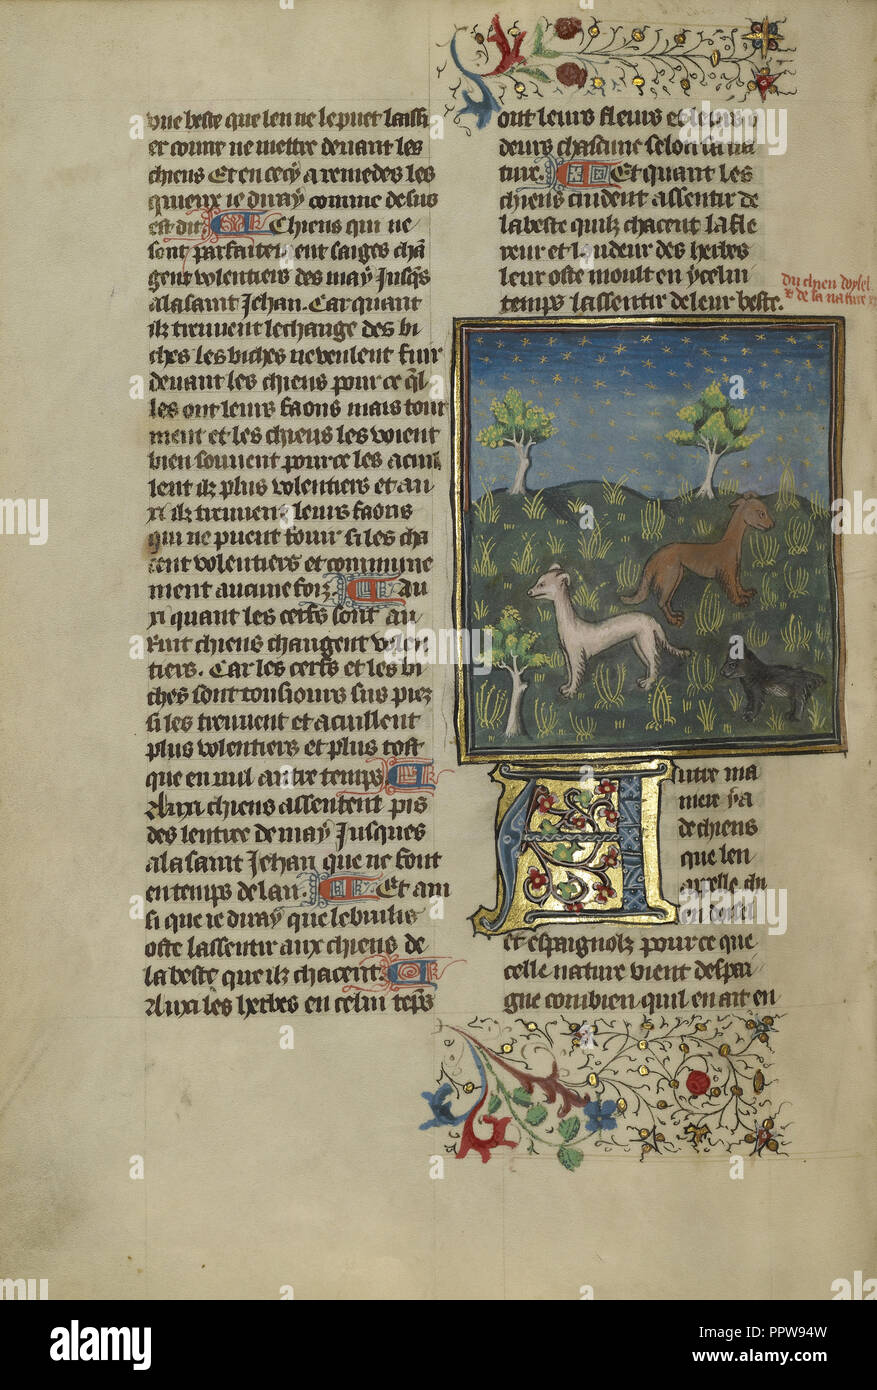 vne beste que len ne le puet laissi
er courre ne mettre deuant les
chiens Et en cecy a remedes les
quieux ie diray comme desus
est dit Chiens qui ne
sont parfaitement saiges chā
gent volentiers des may Jusqs
a la saint Jehan. Car quant
ilz treuuent le change des bi
ches les biches ne veulent fuir
deuant les chiens pour ce ql
les ont leurs faons mais tour
nient et les chiens les voient
bien souuent pour ce les acuil
lent ilz plus volentiers et au
xi ilz treuuent leurs faons
qui ne puent fouir si les cha
cent volentiers et commune
ment aucune foiz Au
xi quant les cerfs sont au
ruit chiens changent volen
tiers. Car les cerfs et les bi
ches sont tousiours sus piez
si les treuuent et acuillent
plus volentiers et plus tost
que en nul autre temps
Auxi chiens assentent pis
des lentree de may Jusques
a la saint Jehan que ne font
en temps de lan. Et aiu
si que ie diray que le brulis
oste lassentir aux chiens de
la beste que ilz chacent.
Auxi les herbes en celui teps
ont leurs fleurs et leurs
deurs chascune selon sa na
ture. Et quant les
chiens cuident assentir de
la beste quilz chacent la fle
reur et loudeur des herbes
leur oste moult en ycelui
temps lassentir de leur beste.
du chien doysel
& de la nature
Autre ma
niere ya
de chiens
que len
apelle chi
en doisel
et espaignolz pour ce que
celle nature vient despai
gne combien quil en ait en
alamy
PPW94W
Image ID: PPW94W
www.alamy.com